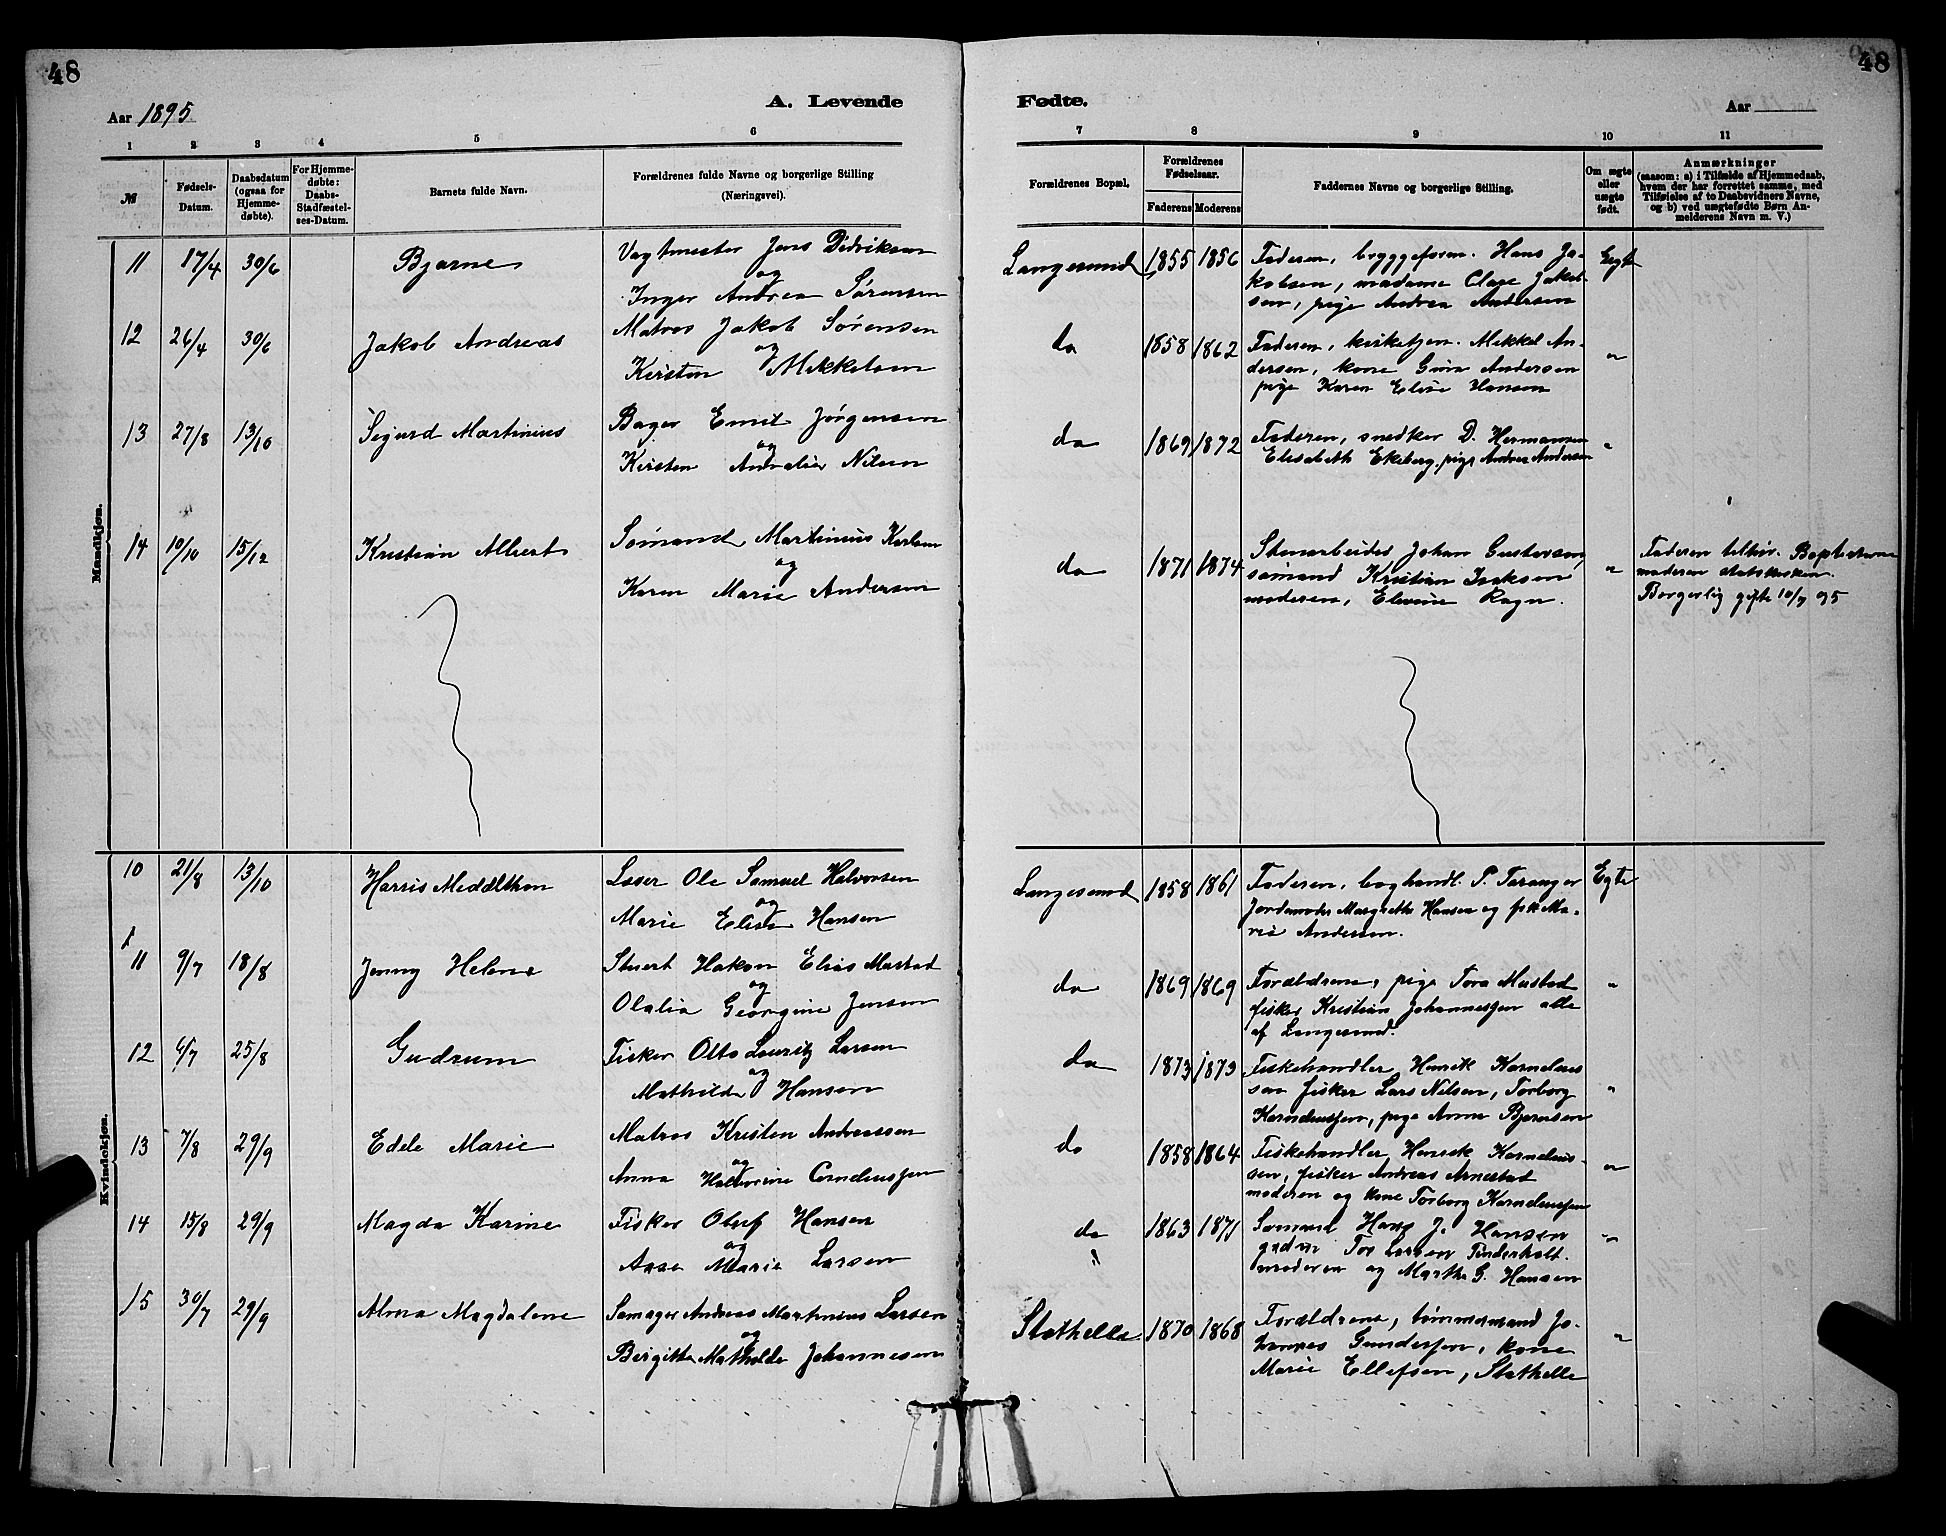 48
48
Aar 1895
A. Levende
Fødte.
Aar
1 2 3 4 5 6 7 8 9 10 11
№
Fødsels-Datum.
Daabsdatum (ogsaa for Hjemmedøbte).
For Hjemmedøbte: Daabs-Stadfæstelses-Datum.
Barnets fulde Navn.
Forældrenes fulde Navne og borgerlige Stilling (Næringsvei).
Forældrenes Bopæl.
Forældrenes Fødselsaar.
Faderens Moderens
Faddernes Navne og borgerlige Stilling.
Om ægte eller uægte født.
Anmærkninger
(saasom: a) i Tilfælde af Hjemmedaab,
hvem der har forrettet samme, med
Tilføielse af to Daabsvidners Navne,
og b) ved uægtefødte Børn An-
melderens Navn m. V.)
Mandkjøn.
11 17/4 30/6 Bjarne
Vagtmester Jens Didriksen
og
Inger Andrea Sørensen
Langesund 1855 1856
Faderen, bryggeform. Hans Ja-
kobsen, madame Clase Jakob-
sen, pige Andrea Andersen
Egte
12 26/4 30/6 Jakob Andreas
Matros Jakob Sørensen
og
Kirsten Mikkelsen
do 1858 1862
Faderen, kirketjen. Mikkel An-
dersen, kone Gina Andersen
pige Karen Elise Hansen
"
13 27/8 13/10 Sigurd Martinius
Bager Emil Jørgensen
og
Kirsten Amalie Nilsen
do 1869 1872
Faderen, snedker D. Hermansen
Elisabeth Ekeberg, pige Andrea Andersen
"
14 10/10 15/12 Kristian Albert
Sømand Martinius Karlsen
og
Karen Marie Andersen
do 1871 1874
Stenarbeider Johan Gustavsen,
sømand Kristian Isaksen
moderen, Elevine Ragn.
"
Faderen tilhør. Baptisterne
moderen statskirken.
Borgerlig gifte 10/7 95
Kvindekjøn.
10 21/8 13/10 Harris Meddlthon
Loser Ole Samuel Halvorsen
og
Marie Elise Hansen
Langesund 1858 1861
Faderen, boghandl. P. Taranger
Jordemoder Margrethe Hansen og frk Ma-
rie Andersen.
Egte
11 9/7 18/8 Jenny Helene
Stuert Hakon Elias Mustad
og
Olalia Georgine Jensen
do 1869 1869
Forældrene, pige Tora Mustad
fisker Kristian Johannessen alle
af Langesund.
"
12 4/7 25/8 Gudrum
Fisker Otto Lauritz Larsen
og
Mathilde Hansen
do 1873 1873
Fiskehandler Henrik Kornelius
sen fisker Lars Nilsen, Torborg
Korneliussen, pige Anne Bjørnsen
"
13 7/8 29/9 Edele Marie
Matros Kristen Andreassen
og
Anna Halvorine Corneliussen
do 1858 1864
Fiskehandler Henrik Kornelius-
sen, fisker Andreas Arnestad
moderen og kone Torborg Korneliussen
"
14 15/8 29/9 Magda Karine
Fisker Oluf Hansen
og
Aase Marie Larsen
do
"
1863 1871
Sømand Hans J. Hansen
Tor Larsen
moderen og Marthe G. Hansen
"
15 30/7 29/9 Alma Magdalene
Sømager Andreas Martinius Larsen
og
Birgitte Mathilde Johannesen
Stathelle 1870 1868
Forældrene, tømmermand Jo-
hannes Gundersen, kone
Marie Ellefsen, Stathelle
"